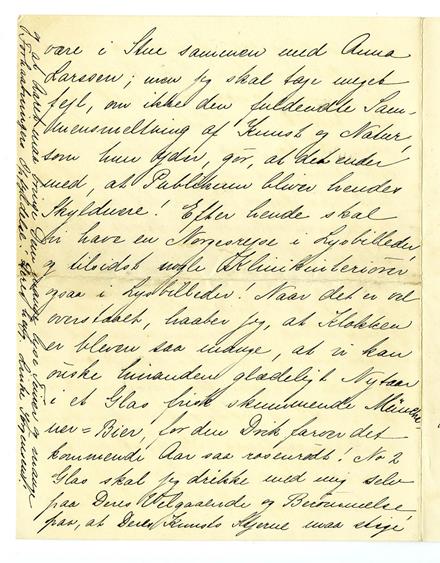 være i Stue sammen med Anna
Larssen; men jeg skal tage meget
fejl, om ikke den fuldendte Sam-
mensmeltning af Kunst og Natur,
som hun yder, gør, at det ender
med, at Publikum bliver hendes
Skyldnere! Efter hende skal
vi have en Norgesrejse i Lysbilleder
og tilsidst nogle Klinikinteriører
ogsaa i Lysbilleder! Naar det er vel
overstaaet, haaber jeg, at Klokken
er bleven saa mange, at vi kan
ønske hinanden glædeligt Nytaar
i et Glas frisk skummende Münche-
ner=Bier, for den Drik farver det
kommende Aar saa rosenrødt! No 2
Glas skal jeg drikke med mig selv
paa Deres Velgaaende og Berømmelse
paa, at Deres Kunsts Stjerne maa stige
og at Aaret maa bringe Dem mange